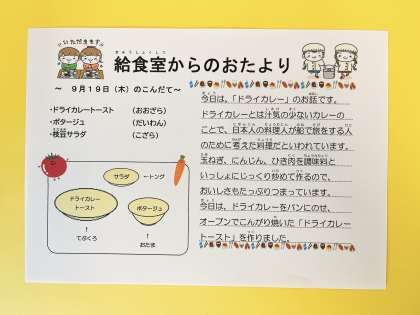 いただきます
きゅうしょくしつ
給食室からのおたより
～ 9月19日（木）のこんだて～
・ドライカレートースト （おおざら）
・ポタージュ （だいわん）
・枝豆サラダ （こざら）
サラダ ←トング
ドライカレー
トースト
ポタージュ
↑
てぶくろ
↑
おたま
今日は、「ドライカレー」のお話です。
ドライカレーとは汁気の少ないカレーの
ことで、日本人の料理人が船で旅をする人
のために考えた料理だといわれています。
玉ねぎ、にんじん、ひき肉を調味料と
いっしょにじっくり炒めて作るので、
おいしさもたっぷりつまっています。
今日は、ドライカレーをパンにのせ、
オーブンでこんがり焼いた「ドライカレー
トースト」を作りました。